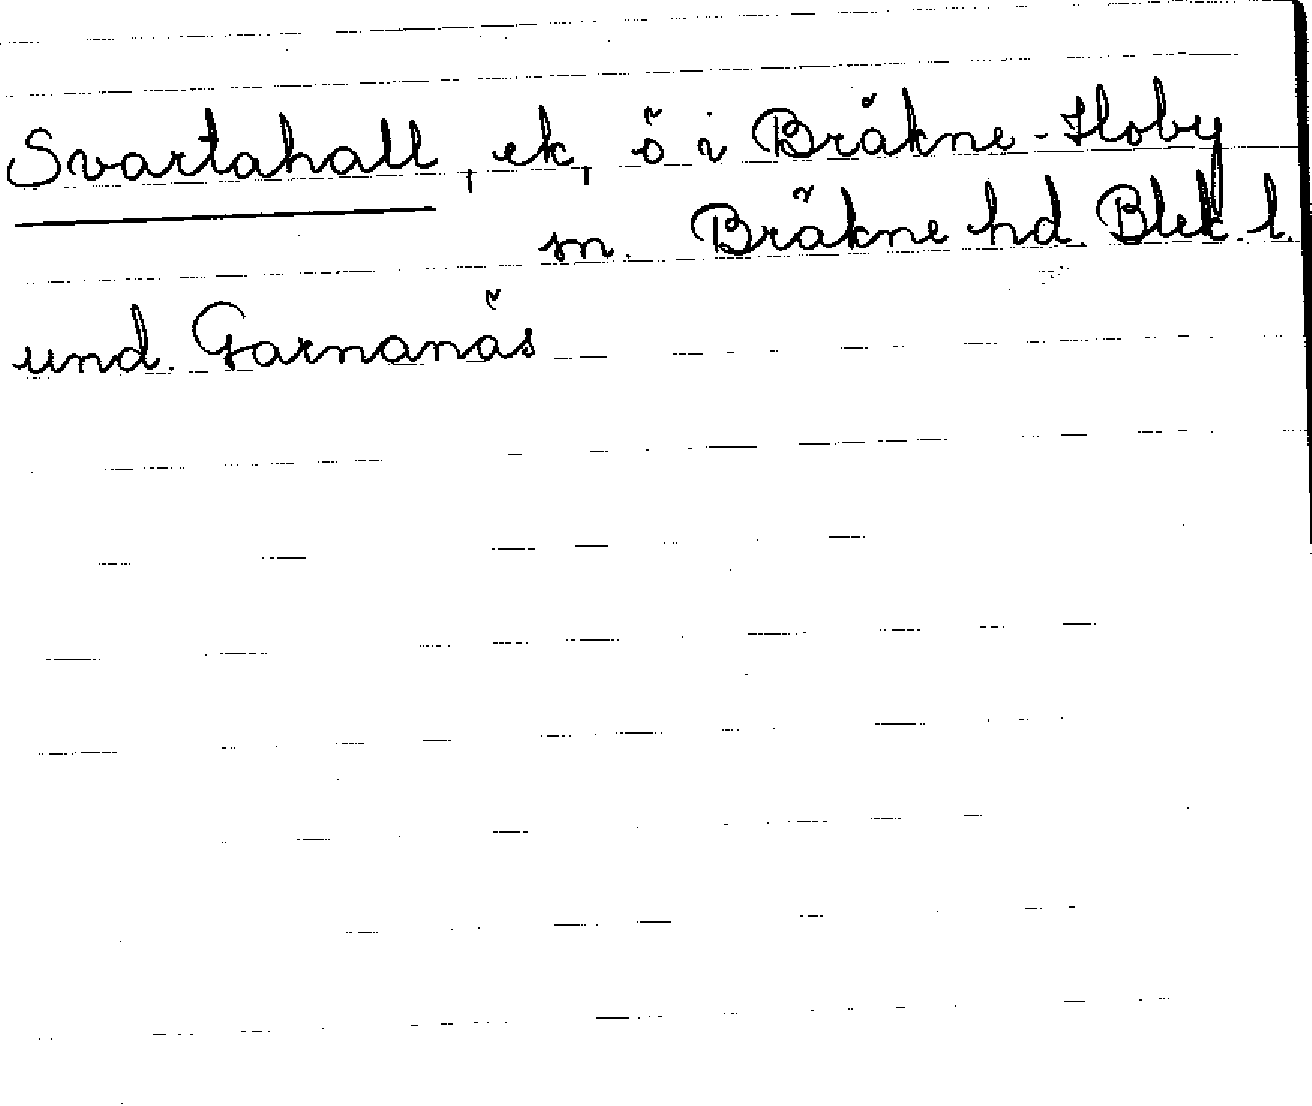 Svartahall, ek, ö i Bräkne-Hoby
sn. Bräkne hd. Blek. l.
und. Garnanäs